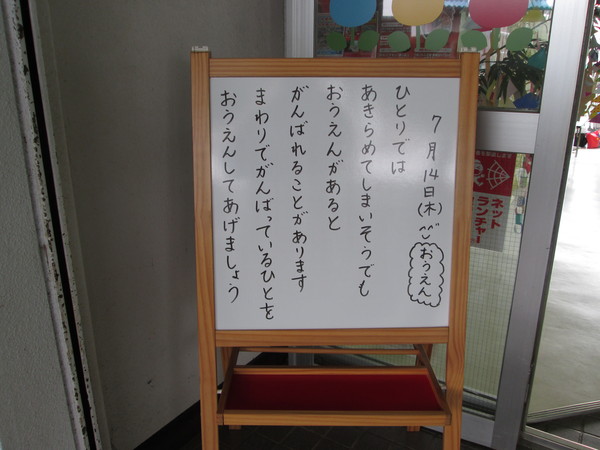 7月14日(木) ^^ おうえん
ひとりでは
あきらめてしまいそうでも
おうえんがあると
がんばれることがあります
まわりでがんばっているひとを
おうえんしてあげましょう
ネット
ランチャー